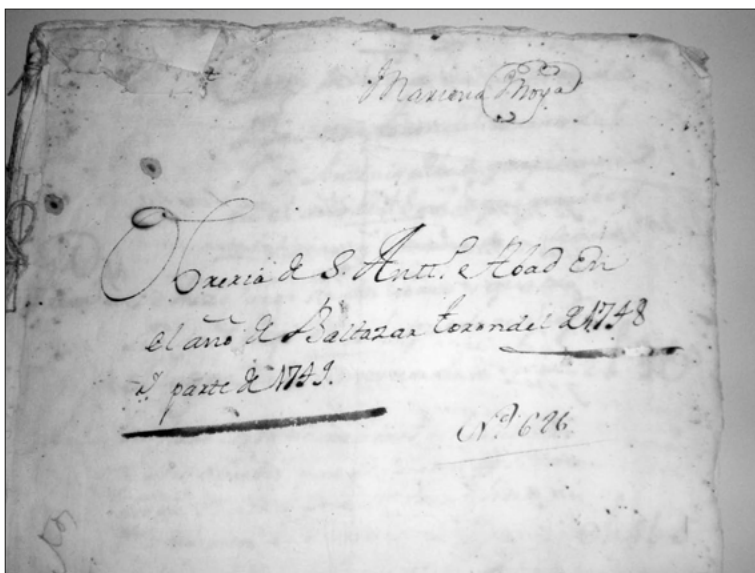 Mariona Moya
Obreria de S. Antt.º Abad En
el año de Baltazar torondel de 1748
y parte de 1749.
Nº 696